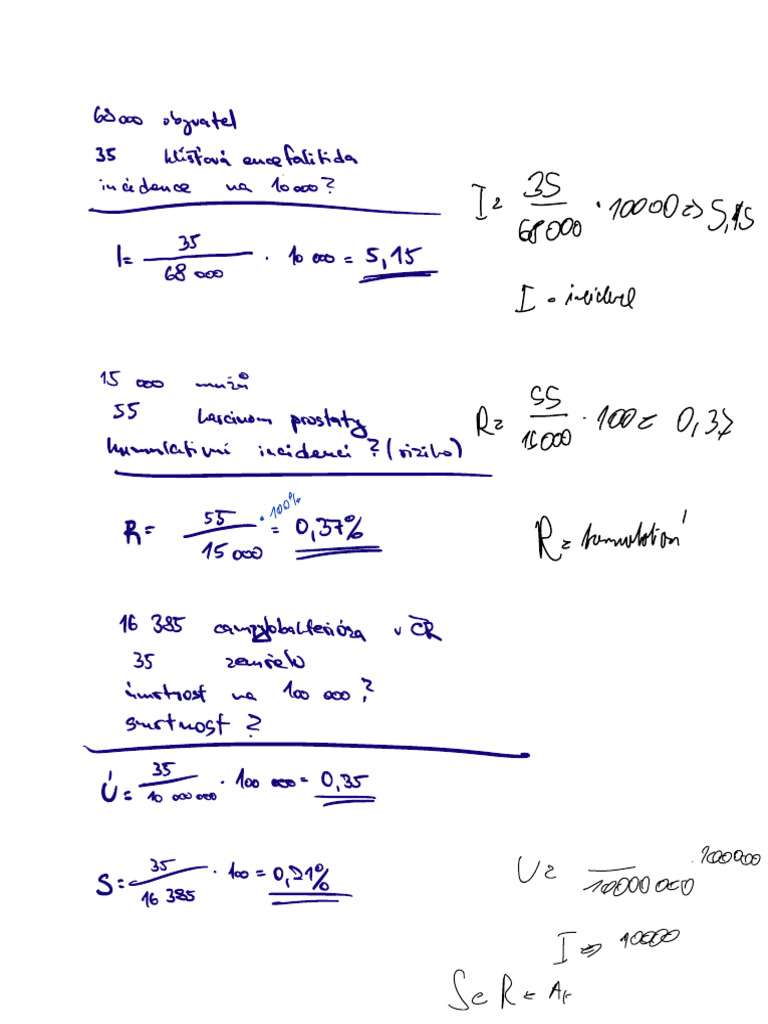 68 000 obyvatel
35 klíšťová encefalitida
incidence na 10 000?
I = 35 / 68 000 · 10 000 = 5,15
I = 35 / 68000 · 10000 => 5,15
I - incidence
15 000 mužů
55 karcinom prostaty
kumulativní incidenci? (riziko)
R = 55 / 15 000 · 100% = 0,37%
R = 55 / 15000 · 100 = 0,37
R = kumulativní
16 385 campylobakterióza v ČR
35 zemřelo
úmrtnost na 100 000?
smrtnost?
Ú = 35 / 10 000 000 · 100 000 = 0,35
S = 35 / 16 385 · 100 = 0,21%
U = / 10000000 · 100000
I => 10000
S e R =